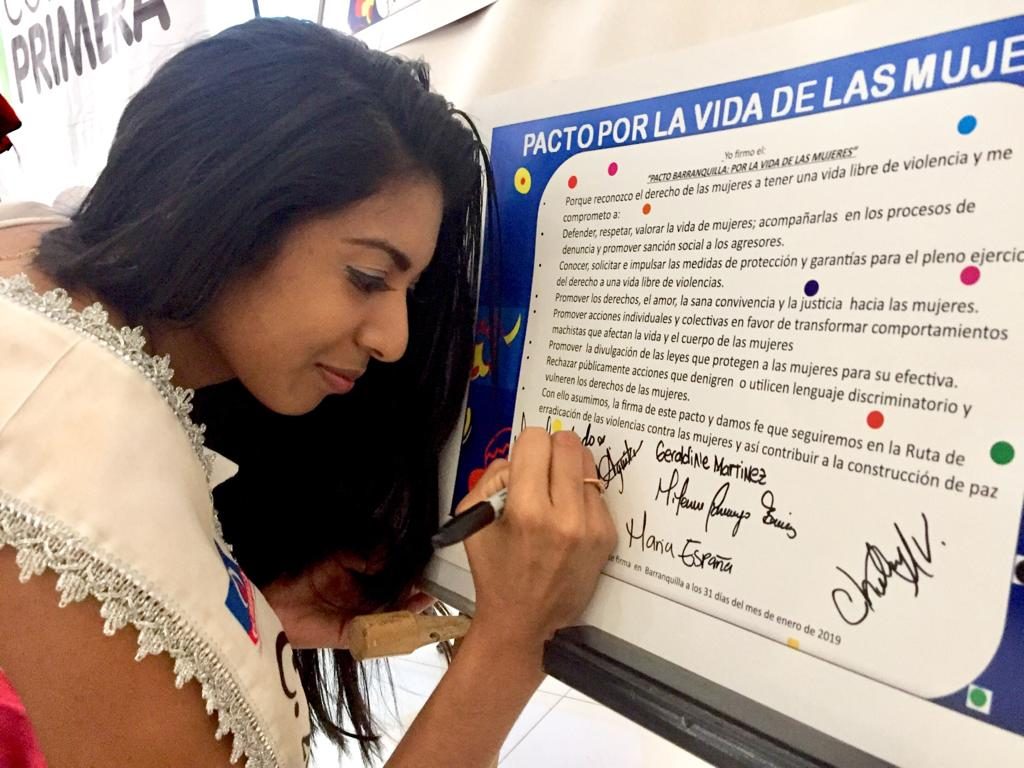 PRIMERA
PACTO POR LA VIDA DE LAS MUJE
Yo firmo el:
"PACTO BARRANQUILLA: POR LA VIDA DE LAS MUJERES"
Porque reconozco el derecho de las mujeres a tener una vida libre de violencia y me
comprometo a:
Defender, respetar, valorar la vida de mujeres; acompañarlas en los procesos de
denuncia y promover sanción social a los agresores.
Conocer, solicitar e impulsar las medidas de protección y garantías para el pleno ejercic
del derecho a una vida libre de violencias.
Promover los derechos, el amor, la sana convivencia y la justicia hacia las mujeres.
Promover acciones individuales y colectivas en favor de transformar comportamientos
machistas que afectan la vida y el cuerpo de las mujeres
Promover la divulgación de las leyes que protegen a las mujeres para su efectiva.
Rechazar públicamente acciones que denigren o utilicen lenguaje discriminatorio y
vulneren los derechos de las mujeres.
Con ello asumimos, la firma de este pacto y damos fe que seguiremos en la Ruta de
erradicación de las violencias contra las mujeres y así contribuir a la construcción de paz
Geraldine Martinez
María España
se firma en Barranquilla a los 31 días del mes de enero de 2019